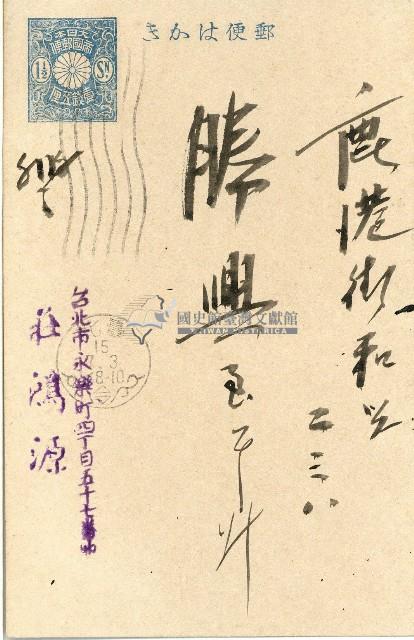 郵便はかき
大日本
帝國郵便
1½ Sɴ
壹錢五厘
鹿港街和興
二三八
勝興
台北市永樂町四丁目五十七番地
莊鴻源
15
3
8-10
國史館臺灣文獻館
TAIWAN HISTORICA